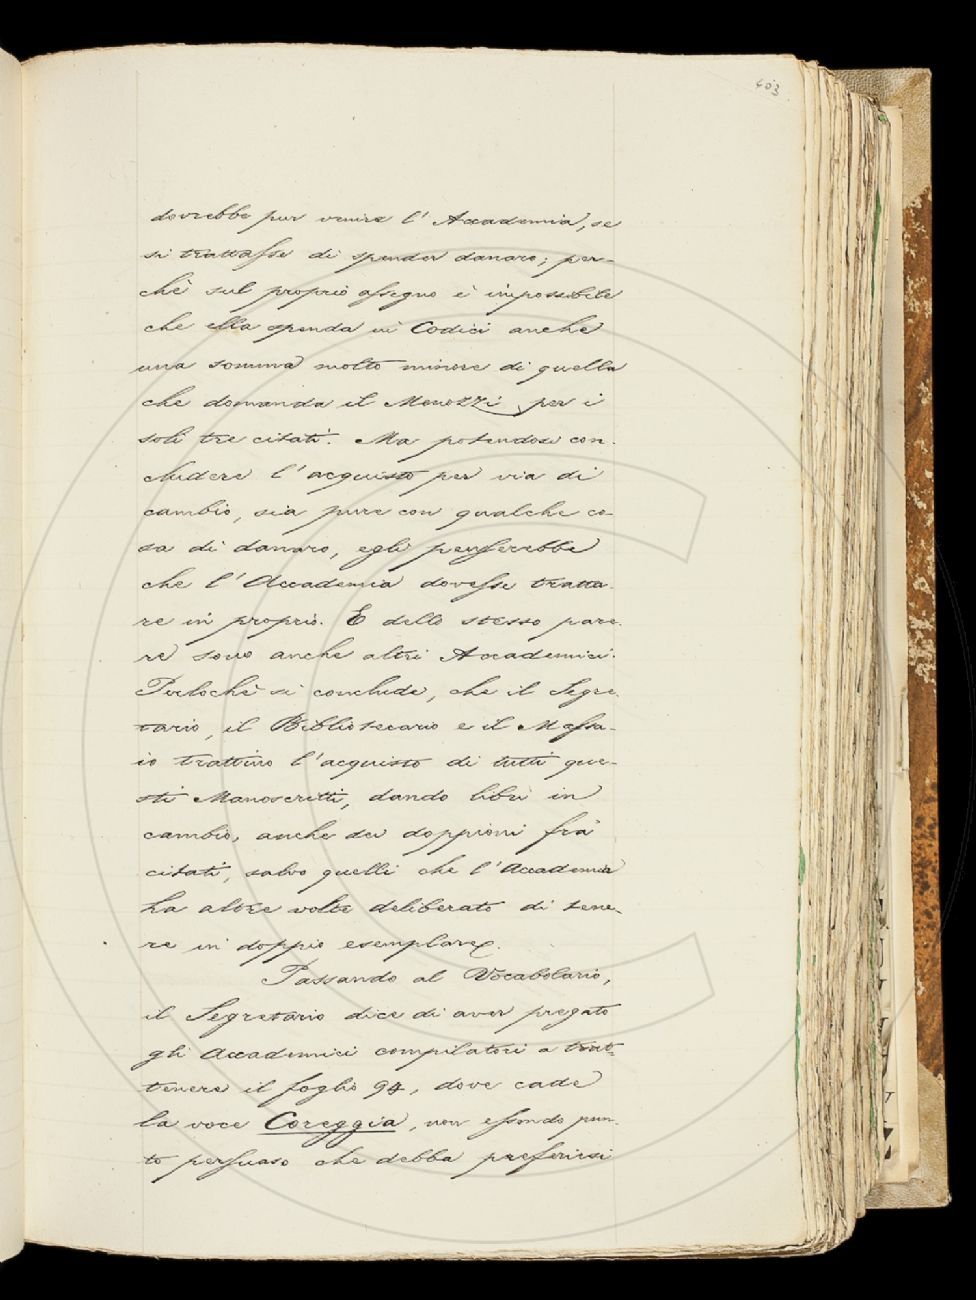 403
dovrebbe pur venire l'Accademia, se
si trattasse di spender danaro; per-
chè sul proprio assegno è impossibile
che ella spenda in Codici anche
una somma molto minore di quella
che domanda il Menozzi per i
soli tre citati. Ma potendosi con-
chiudere l'acquisto per via di
cambio, sia pure con qualche co-
sa di danaro, egli penserebbe
che l'Accademia dovesse tratta-
re in proprio. E dello stesso pare-
re sono anche altri Accademici.
Perlochè si conclude, che il Segre-
tario, il Bibliotecario e il Massa-
io trattino l'acquisto di tutti que-
sti Manoscritti, dando libri in
cambio, anche dei doppioni fra'
citati, salvo quelli che l'Accademia
ha altre volte deliberato di tene-
re in doppio esemplare.
Passando al Vocabolario,
il Segretario dice di aver pregato
gli Accademici compilatori a trat-
tenere il foglio 94, dove cade
la voce Coreggia, non essendo pun-
to persuaso che debba preferirsi